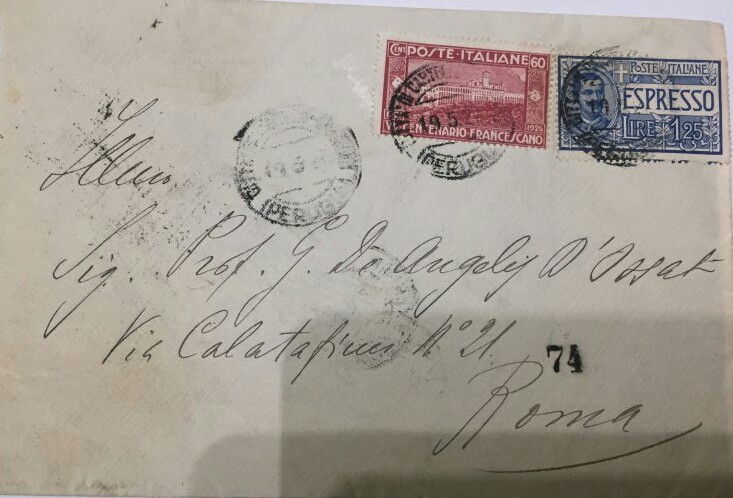 CENT POSTE·ITALIANE 60
VII CENTENARIO·FRANCESCANO 1926
POSTE ITALIANE
ESPRESSO
LIRE 1,25
19 5
(PERUGIA)
19 5
(PERUGIA)
Sig. Prof. G. De Angelis D'Ossat
Via Calatafimi N° 21.
74
Roma